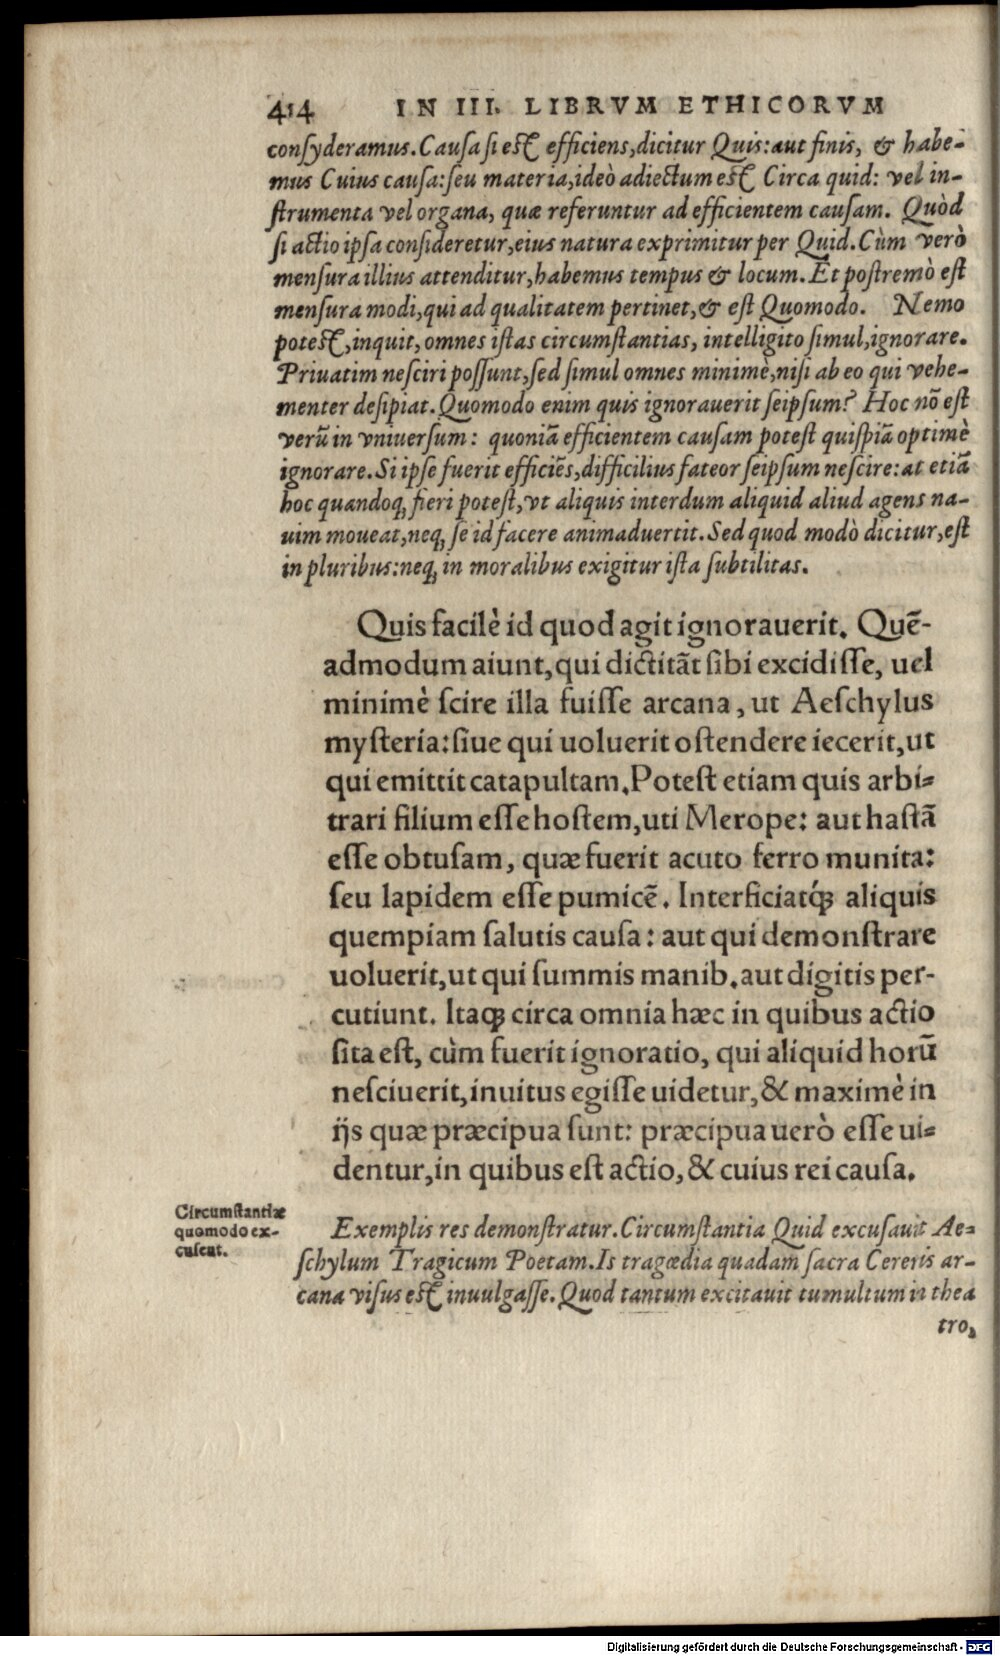 414 IN III. LIBRVM ETHICORVM
conſyderamus. Cauſa ſi eſt efficiens, dicitur Quis: aut finis, & habe-
mus Cuius cauſa: ſeu materia, ideò adiectum eſt Circa quid: vel in-
ſtrumenta vel organa, quæ referuntur ad efficientem cauſam. Quòd
ſi actio ipſa conſideretur, eius natura exprimitur per Quid. Cùm verò
menſura illius attenditur, habemus tempus & locum. Et poſtremò eſt
menſura modi, qui ad qualitatem pertinet, & eſt Quomodo. Nemo
poteſt, inquit, omnes iſtas circumſtantias, intelligito ſimul, ignorare.
Priuatim neſciri poſſunt, ſed ſimul omnes minimè, niſi ab eo qui vehe-
menter deſipiat. Quomodo enim quis ignorauerit ſeipſum? Hoc nō eſt
verū in vniuerſum: quoniā efficientem cauſam poteſt quiſpiā optimè
ignorare. Si ipſe fuerit efficiēs, difficilius fateor ſeipſum neſcire: at etiā
hoc quandoq; fieri poteſt, vt aliquis interdum aliquid aliud agens na-
uim moueat, neq; ſe id facere animaduertit. Sed quod modò dicitur, eſt
in pluribus: neq; in moralibus exigitur iſta ſubtilitas.
Quis facilè id quod agit ignorauerit. Quē-
admodum aiunt, qui dictitāt ſibi excidiſſe, uel
minimè ſcire illa fuiſſe arcana, ut Aeſchylus
myſteria: ſiue qui uoluerit oſtendere iecerit, ut
qui emittit catapultam. Poteſt etiam quis arbi-
trari filium eſſe hoſtem, uti Merope: aut haſtā
eſſe obtuſam, quæ fuerit acuto ferro munita:
ſeu lapidem eſſe pumicē. Interficiatq́; aliquis
quempiam ſalutis cauſa: aut qui demonſtrare
uoluerit, ut qui ſummis manib. aut digitis per-
cutiunt. Itaq; circa omnia hæc in quibus actio
ſita eſt, cùm fuerit ignoratio, qui aliquid horū
neſciuerit, inuitus egiſſe uidetur, & maximè in
ijs quæ præcipua ſunt: præcipua uerò eſſe ui-
dentur, in quibus eſt actio, & cuius rei cauſa.
Circumſtantiæ
quomodo ex-
cuſent.
Exemplis res demonſtratur. Circumſtantia Quid excuſauit Ae-
ſchylum Tragicum Poetam. Is tragœdia quadam ſacra Cereris ar-
cana viſus eſt inuulgaſſe. Quod tantum excitauit tumultum in thea
tro,
Digitalisierung gefördert durch die Deutsche Forschungsgemeinschaft - DFG